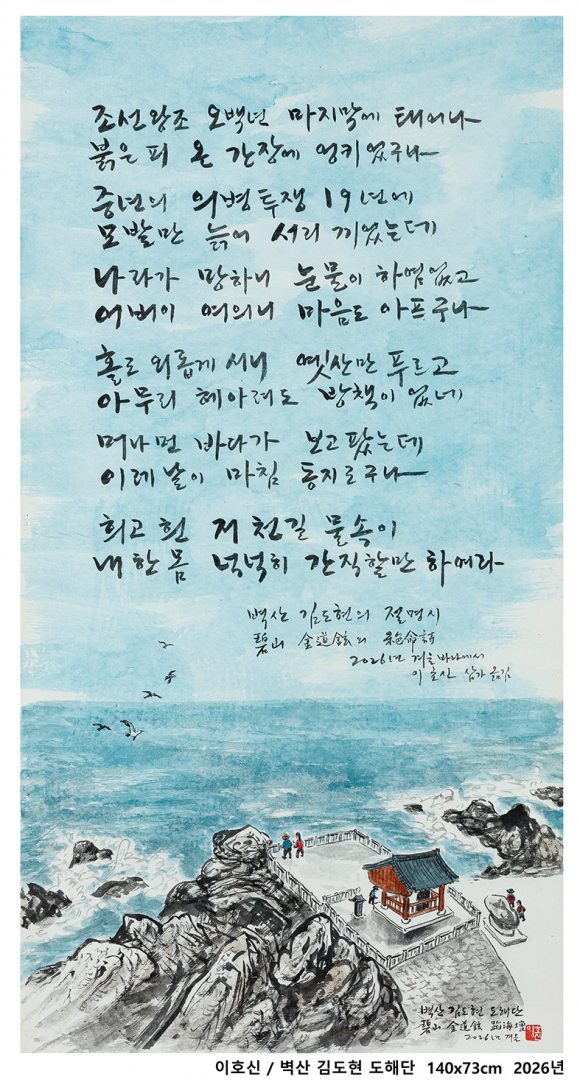 조선왕조 오백년 마지막에 태어나
붉은 피 온 간장에 엉키었구나
중년의 의병투쟁 19년에
모발만 늙어 서리 끼었는데
나라가 망하니 눈물이 하염없고
어버이 여의니 마음도 아프구나
홀로 외롭게 서니 옛산만 푸르고
아무리 헤아려도 방책이 없네
머나먼 바다가 보고팠는데
이레 날이 마침 동지로구나
희고 흰 저 천길 물속이
내 한 몸 넉넉히 간직할만 하여라
벽산 김도현의 절명시
碧山 金道鉉의 絶命詩
2026년 겨울 바다에서
이호신 삼가 옮김
벽산 김도현 도해단
碧山 金道鉉 蹈海壇
2026년 겨울
이호신 / 벽산 김도현 도해단 140x73cm 2026년